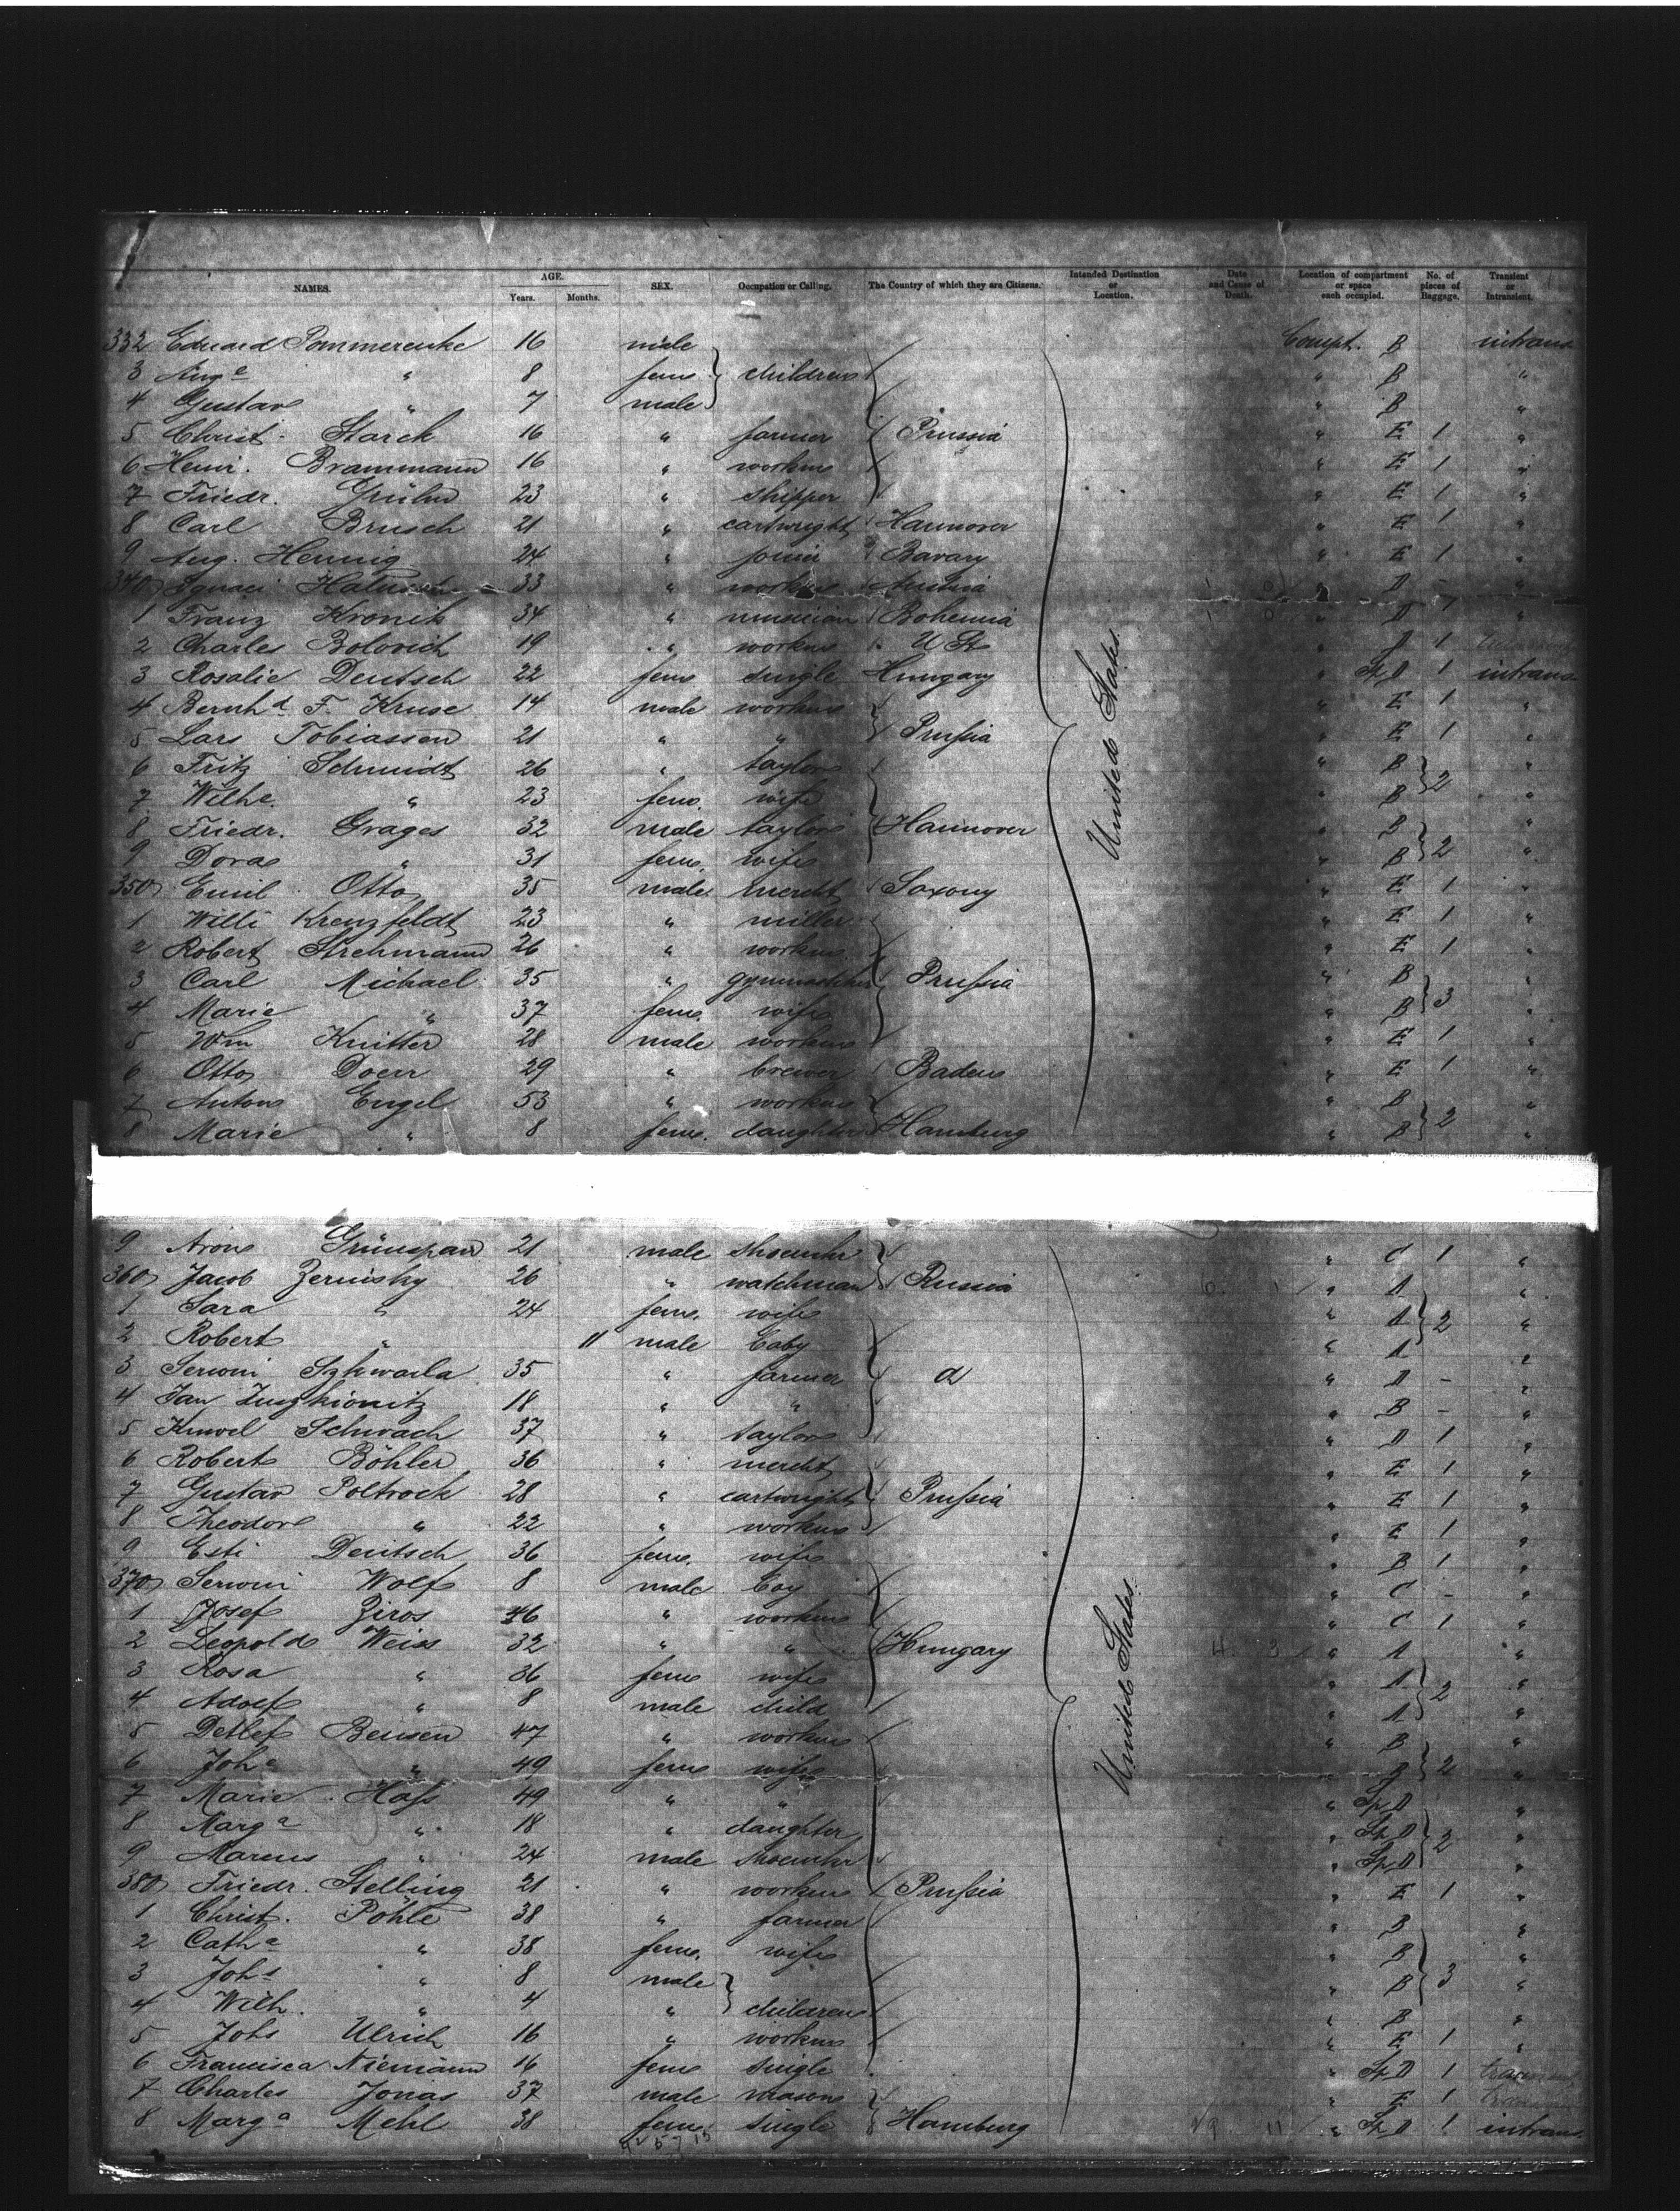 NAMES. AGE. Years. Months. SEX. Occupation or Calling. The Country of which they are Citizens. Intended Destination or Location. Date and Cause of Death. Location of compartment or space each occupied. No. of pieces of Baggage. Transient or Intransient.
332 Eduard Pommerenke 16 male Compt. B intrans
3 Auge " 8 fem } children " B "
4 Gustav " 7 male " B "
5 Christ. Starck 16 " farmer Prussia " E 1 "
6 Heinr. Brammann 16 " workm " E 1 "
7 Friedr. 23 " shipper " E 1 "
8 Carl Brusch 21 " cartwright Hannover " E 1 "
9 Aug. Hennig 24 " Bavary " E 1 "
340 Ignaci 33 " workm Austria " D - "
1 Franz Kronik 34 " musician Bohemia " D "
2 Charles Bolovich 19 " workm U St " 1
3 Rosalie Deutsch 22 fem single Hungary " Sp D 1 intrans
4 Bernhd F. Kruse 14 male workm " E 1 "
5 Lars Tobiassen 21 " " Prussia " E 1 "
6 Fritz Schmidt 26 " taylor " B } 2 "
7 Wilhe. " 23 fem. wife " B "
8 Friedr. Grages 32 male taylor Hannover " B } 2 "
9 Dora " 31 fem. wife " B "
350 Emil Otto 35 male mercht Saxony " E 1 "
1 Willi Krenzfeldt 23 " miller " E 1 "
2 Robert Strehmann 26 " workm " E 1 "
3 Carl Michael 35 " Prussia " B } 3 "
4 Marie " 37 fem. wife " B "
5 Wm Knitter 28 male workm " E 1 "
6 Otto Doerr 29 " brewer Baden " E 1 "
7 Anton Engel 53 " workm " B } 2 "
8 Marie " 8 fem. daughter Hamburg " B "
United States.
9 Aron Grünspan 21 male shoemkr " C 1 "
360 Jacob Zerinsky 26 " watchman Russia " A "
1 Sara " 24 fem. wife " A } 2 "
2 Robert " 11 male baby " A "
3 Serwni 35 " farmer d " D - "
4 Jan 18 " " " B - "
5 Schwach 37 " taylor " D 1 "
6 Robert Böhler 36 " mercht " E 1 "
7 Gustav Poltrock 28 " cartwright Prussia " E 1 "
8 Theodor " 22 " workm " E 1 "
9 Esti Deutsch 36 fem. wife " B 1 "
370 Serwni Wolf 8 male boy " C - "
1 Josef Ziros 46 " workm " C 1 "
2 Leopold Weiss 32 " " Hungary " A "
3 Rosa " 36 fem wife " A } 2 "
4 Adolf " 8 male child " A "
5 Detlef Bensen 47 " workm " B "
6 Joha " 49 fem wife " B } 2 "
7 Marie Hass 49 " " " Sp D "
8 Marga " 18 " daughter " Sp D } 2 "
9 Marcus " 24 male shoemkr " Sp D "
380 Friedr. Stelling 21 " workm Prussia " E 1 "
1 Christ. Pöhle 38 " farmer " B "
2 Catha " 38 fem. wife " B } 3 "
3 Johs " 8 male } children " B "
4 Wilh. " 4 " " B "
5 Johs Ulrich 16 " workm " E 1 "
6 Francisca Niemann 16 fem single " Sp D 1
7 Charles Jonas 37 male mason " E 1
8 Marga Mehl 38 fem. single Hamburg " Sp D 1 intrans
United States.